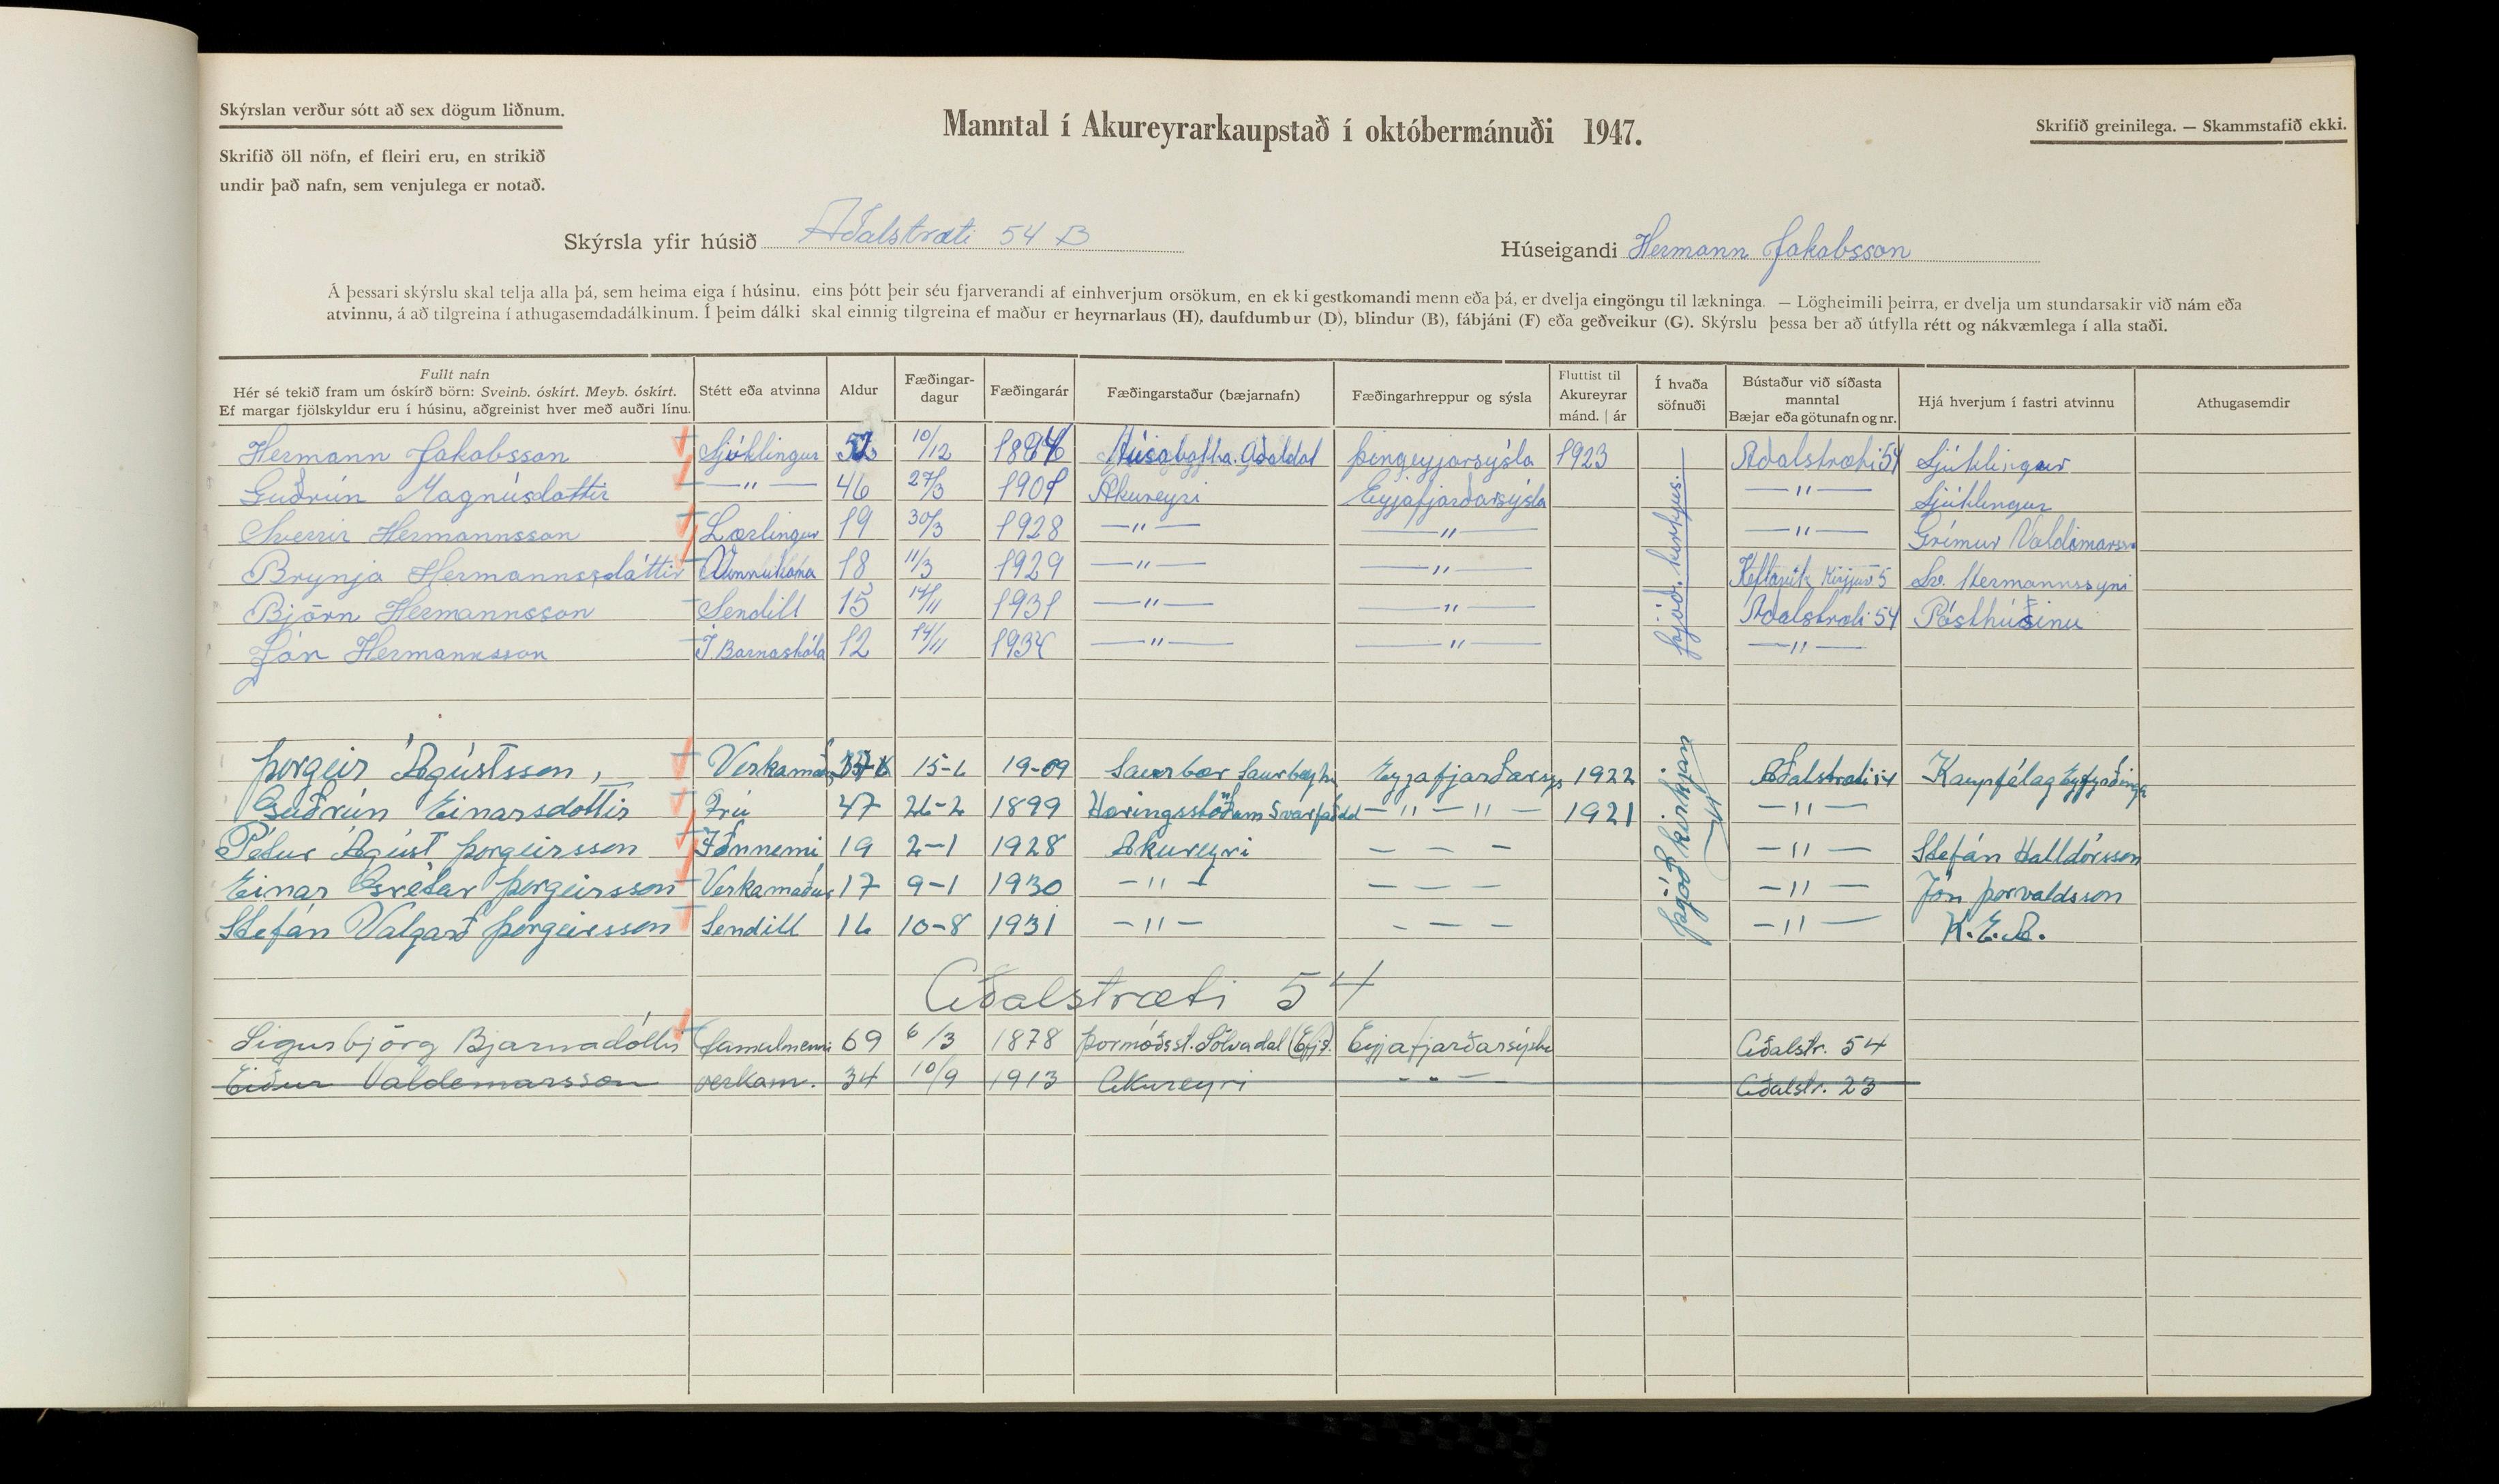 Skýrslan verður sótt að sex dögum liðnum.
Skrifið öll nöfn, ef fleiri eru, en strikið
undir það nafn, sem venjulega er notað.
Manntal í Akureyrarkaupstað í októbermánuði 1947.
Skrifið greinilega. — Skammstafið ekki.
Skýrsla yfir húsið Aðalstræti 54 B
Húseigandi Hermann Jakobsson
Á þessari skýrslu skal telja alla þá, sem heima eiga í húsinu, eins þótt þeir séu fjarverandi af einhverjum orsökum, en ekki gestkomandi menn eða þá, er dvelja eingöngu til lækninga. — Lögheimili þeirra, er dvelja um stundarsakir við nám eða
atvinnu, á að tilgreina í athugasemdadálkinum. Í þeim dálki skal einnig tilgreina ef maður er heyrnarlaus (H), daufdumbur (D), blindur (B), fábjáni (F) eða geðveikur (G). Skýrslu þessa ber að útfylla rétt og nákvæmlega í alla staði.
Fullt nafn
Hér sé tekið fram um óskírð börn: Sveinb. óskírt. Meyb. óskírt.
Ef margar fjölskyldur eru í húsinu, aðgreinist hver með auðri línu.
Stétt eða atvinna
Aldur
Fæðingar-
dagur
Fæðingarár
Fæðingarstaður (bæjarnafn)
Fæðingarhreppur og sýsla
Fluttist til
Akureyrar
mánd. | ár
Í hvaða
söfnuði
Bústaður við síðasta
manntal
Bæjar eða götunafn og nr.
Hjá hverjum í fastri atvinnu
Athugasemdir
Hermann Jakobsson Sjúklingur 52 10/12 1894 Aðaldal Þingeyjarsýsla 1923 Aðalstræti 54 Sjúklingur
Guðrún Magnúsdóttir —〃— 46 27/3 1901 Akureyri Eyjafjarðarsýsla —〃— Sjúklingur
Sverrir Hermannsson Lærlingur 19 30/3 1928 —〃— —〃— —〃— Grímur Valdimarsson
Brynja Hermannsdóttir 18 11/3 1929 —〃— —〃— Keflavík 5 Sv. Hermannssyni
Björn Hermannsson Sendill 15 14/11 1931 —〃— —〃— Aðalstræti 54 Pósthúsinu
Jón Hermannsson Í. Barnaskóla 12 14/11 1934 —〃— —〃— —〃—
þjóðkirkjus.
Þorgeir Ágústsson, Verkamaður 15-6 19-09 Saurbær Saurbæjhr Eyjafjarðarsýs 1922 Aðalstræti 54 Kaupfélag Eyfyrðinga
Guðrún Einarsdóttir Frú 47 26-2 1899 Hæringsstöðum Svarfaðdal —〃—〃— 1921 —〃—
Pétur Ágúst Þorgeirsson Iðnnemi 19 2-1 1928 Akureyri — — — —〃— Stefán Halldórsson
Einar Grétar Þorgeirsson Verkamaður 17 9-1 1930 —〃— — — — —〃— Jón Þorvaldsson
Stefán Valgarð Þorgeirsson Sendill 16 10-8 1931 —〃— — — — —〃— K.E.A.
Þjóðkirkjan
Aðalstræti 54
Sigurbjörg Bjarnadóttir gamalmenni 69 6/3 1878 Þormóðsst. Sölvadal (Eyj.s). Eyjafjarðarsýsla Aðalstr. 54
Eiður Valdemarsson verkam. 34 10/9 1913 Akureyri —〃— Aðalstr. 23